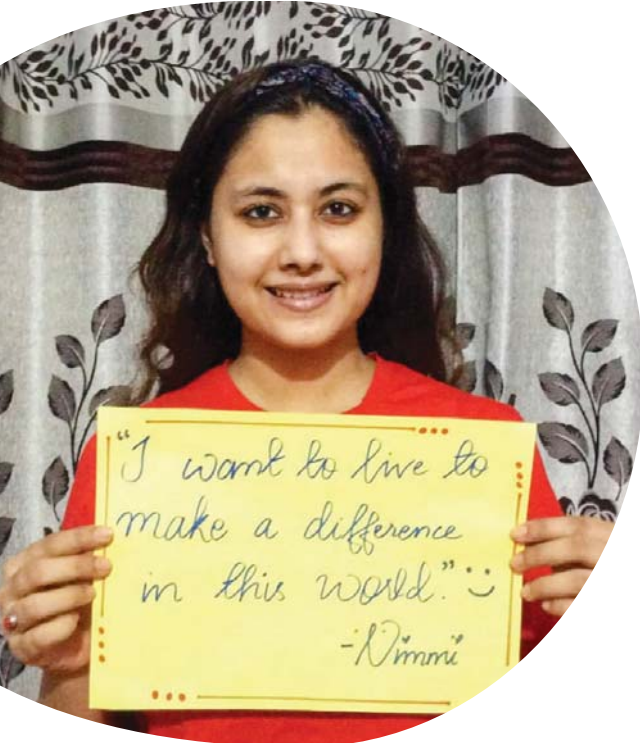 "I want to live to
make a difference
in this world." :)
-Nimmi